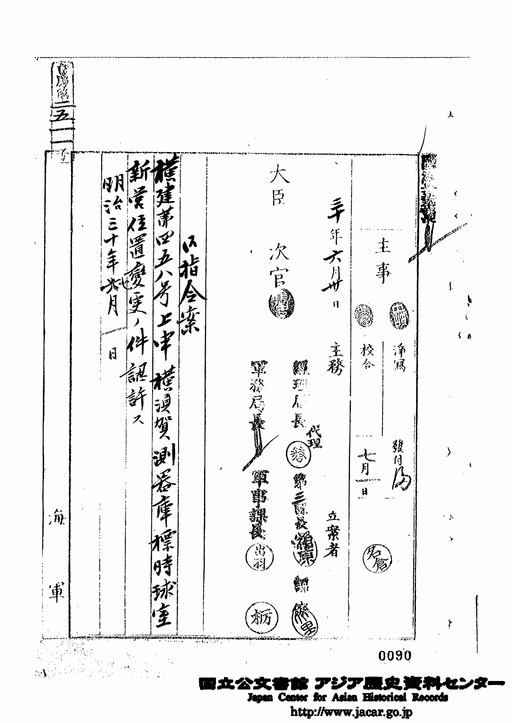 二五一一
主事
浄寫
校合
發付 済
七月一日
名倉
三十年六月廿日
主務
立案者
經理局長
代理
第三課長
大臣
次官
軍務局長
軍事課長
出羽
栃
御指令案
横建第四五八号上申横須賀測器庫標時球室
新営位置變更ノ件認許ス
明治三十年七月一日
海軍
0090
国立公文書館 アジア歴史資料センター
Japan Center for Asian Historical Records
http://www.jacar.go.jp